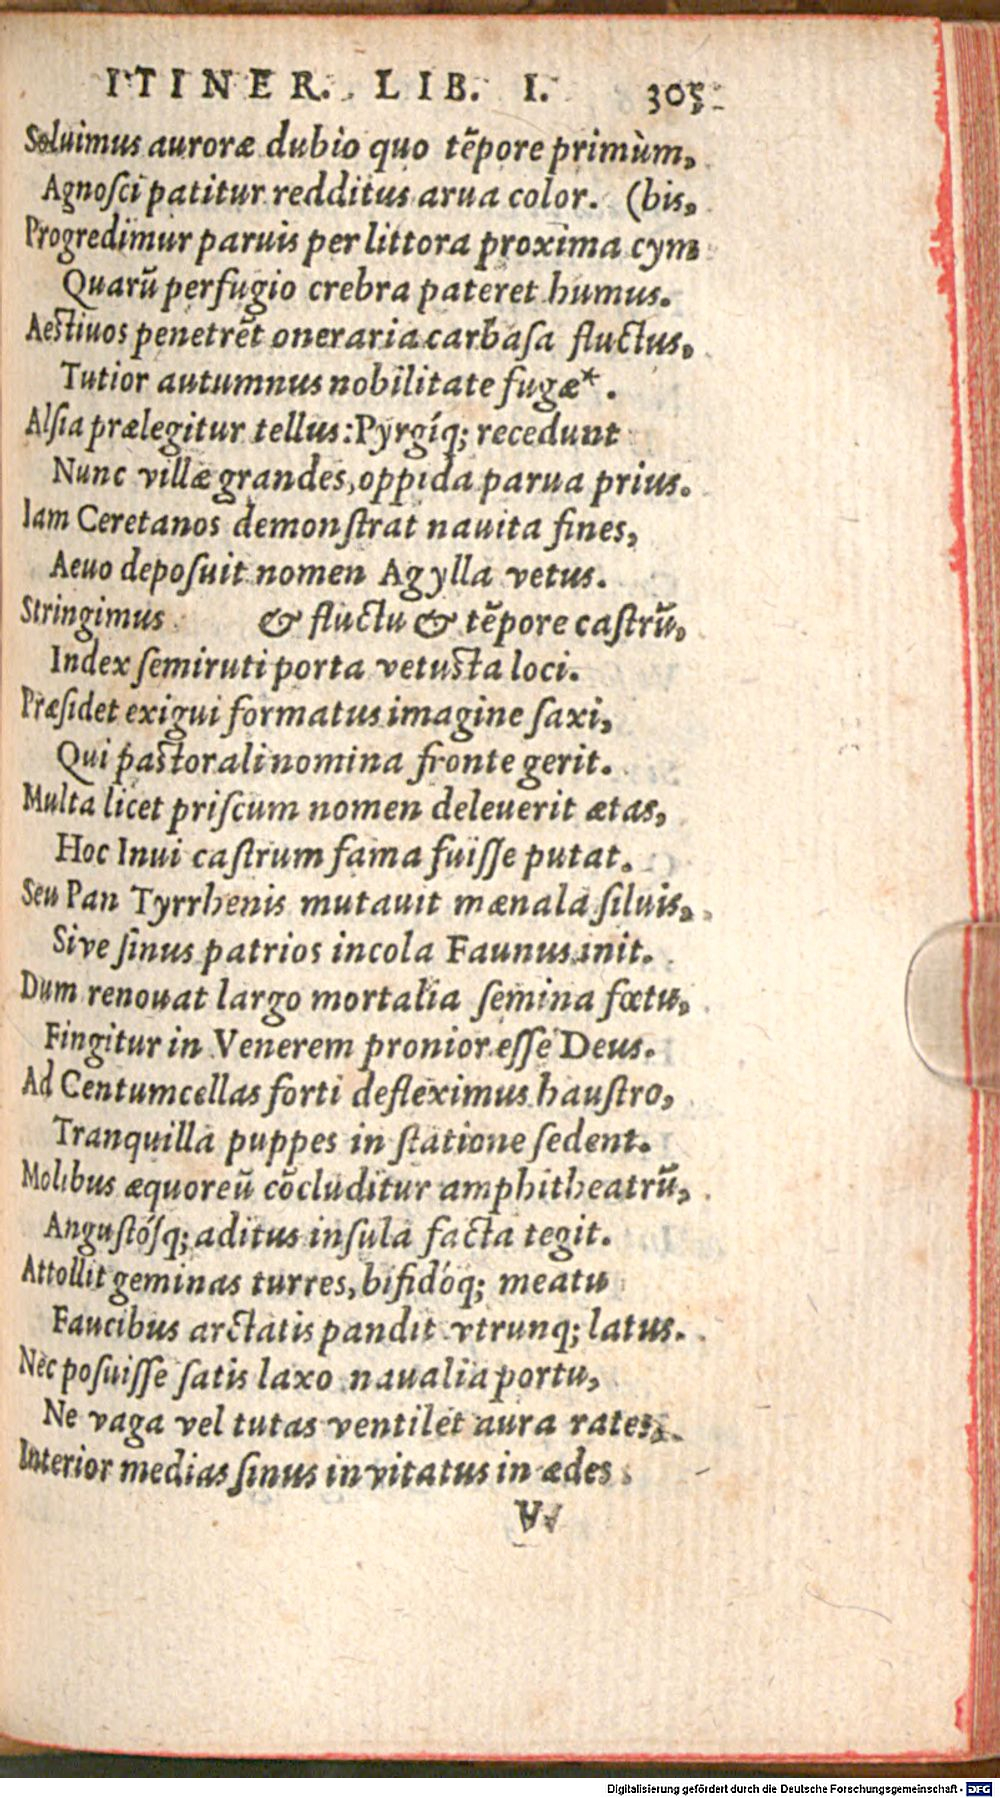 ITINER. LIB. I. 305
Soluimus auroræ dubio quo tẽpore primùm,
Agnosci patitur redditus arua color. (bis,
Progredimur paruis per littora proxima cym
Quarũ perfugio crebra pateret humus.
Aestiuos penetrẽt oneraria carbasa fluctus,
Tutior autumnus nobilitate fugæ*.
Alsia prælegitur tellus: Pyrgíq; recedunt
Nunc villæ grandes, oppida parua prius.
Iam Ceretanos demonstrat nauita fines,
Aeuo deposuit nomen Agylla vetus.
Stringimus & fluctu & tẽpore castrũ,
Index semiruti porta vetusta loci.
Præsidet exigui formatus imagine saxi,
Qui pastorali nomina fronte gerit.
Multa licet priscum nomen deleuerit ætas,
Hoc Inui castrum fama fuisse putat.
Seu Pan Tyrrhenis mutauit mænala siluis,
Sive sinus patrios incola Faunus init.
Dum renouat largo mortalia semina fœtu,
Fingitur in Venerem pronior esse Deus.
Ad Centumcellas forti defleximus haustro,
Tranquilla puppes in statione sedent.
Molibus æquoreũ cõcluditur amphitheatrũ,
Angustósq; aditus insula facta tegit.
Attollit geminas turres, bifidóq; meatu
Faucibus arctatis pandit vtrunq; latus.
Nec posuisse satis laxo naualia portu,
Ne vaga vel tutas ventilet aura rates.
Interior medias sinus invitatus in ædes
V
Digitalisierung gefördert durch die Deutsche Forschungsgemeinschaft - DFG